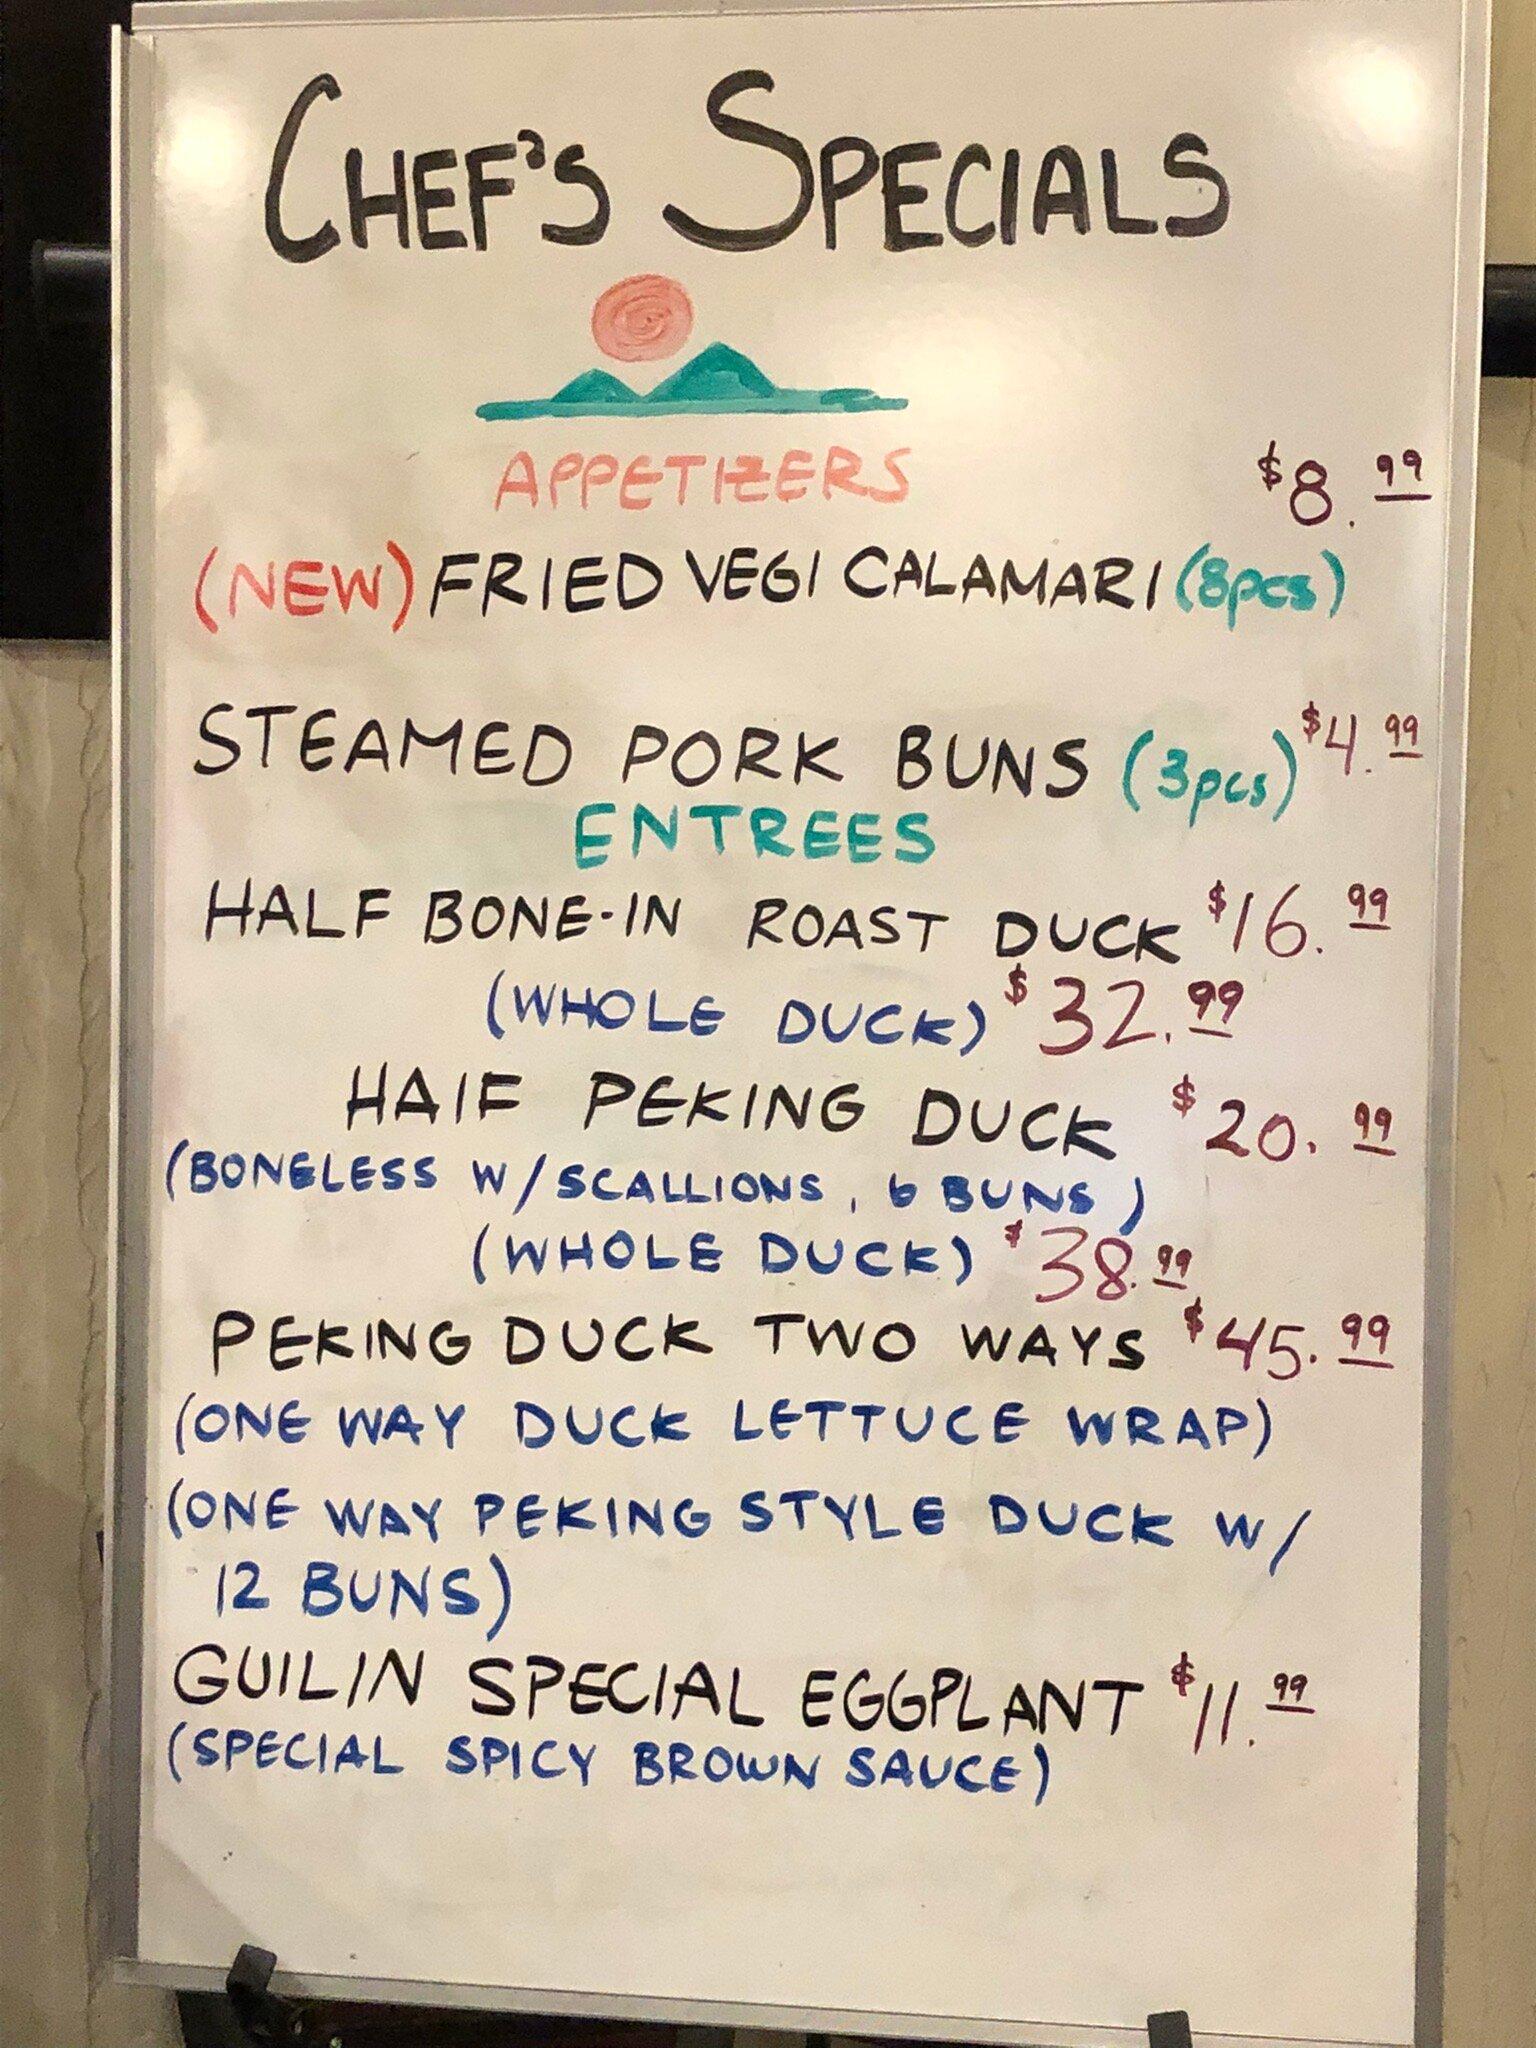 CHEF'S SPECIALS
APPETIZERS
$8.99
(NEW) FRIED VEGI CALAMARI (8pcs)
STEAMED PORK BUNS (3pcs) $4.99
ENTREES
HALF BONE-IN ROAST DUCK $16.99
(WHOLE DUCK) $32.99
HAIF PEKING DUCK $20.99
(BONELESS W/SCALLIONS, 6 BUNS)
(WHOLE DUCK) $38.99
PEKING DUCK TWO WAYS $45.99
(ONE WAY DUCK LETTUCE WRAP)
(ONE WAY PEKING STYLE DUCK W/
12 BUNS)
GUILIN SPECIAL EGGPLANT $11.99
(SPECIAL SPICY BROWN SAUCE)